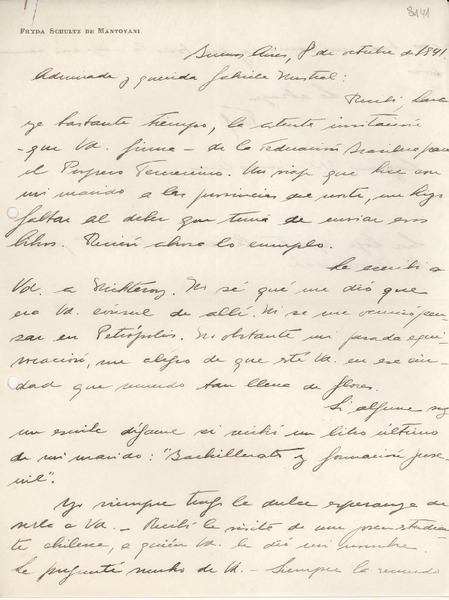 8141
FRYDA SCHULTZ DE MANTOVANI
Buenos Aires, 8 de octubre de 1941.
Admirada y querida Gabriela Mistral:
Recibí, hace
ya bastante tiempo, la atenta invitación
- que Vd. firma - de la Federación Brasilera para
el Progreso Femenino. Un viaje que hice con
mi marido a las provincias del norte, me hizo
faltar al deber que tenía de enviar esos
libros. Recién ahora lo cumplo.
Le escribí a
Vd. a Nichteroy. No sé qué me dió que
era Vd. cónsul de allí. Ni se me ocurrió pen-
sar en Petrópolis. No obstante mi pasada equi-
vocación, me alegro de que esté Vd. en esa ciu-
dad que recuerdo tan llena de flores.
Si alguna vez
me escribe dígame si recibió un libro último
de mi marido: "Bachillerato y formación juve-
nil".
Yo siempre tengo la dulce esperanza de
verla a Vd. - Recibí la visita de una joven estudian-
te chilena, a quién Vd. le dió mi nombre.
Le pregunté mucho de Vd. - Siempre la recuerdo